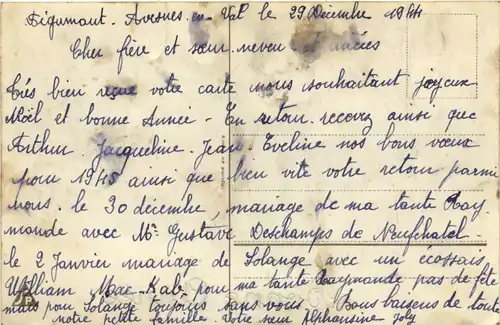 Figumont. Avesnes-en-Val le 29 Décembre 1944
Cher frère et sœur neveu et nièces
Très bien reçue votre carte nous souhaitant joyeux
Noël et bonne Année - En retour recevez ainsi que
Arthur. Jacqueline. Jean. Eveline nos bons vœux
pour 1945 ainsi que bien vite votre retour parmi
nous. le 30 décembre, mariage de ma tante Ray
monde avec Mr Gustave Deschamps de Neufchatel-
le 2 Janvier mariage de Solange avec un écossais
William Mac-Kab pour ma tante Raymonde pas de fête
mais pour Solange toujours sans vous. Bons baisers de tout
notre petite famille. Votre sœur Alphonsine Joly